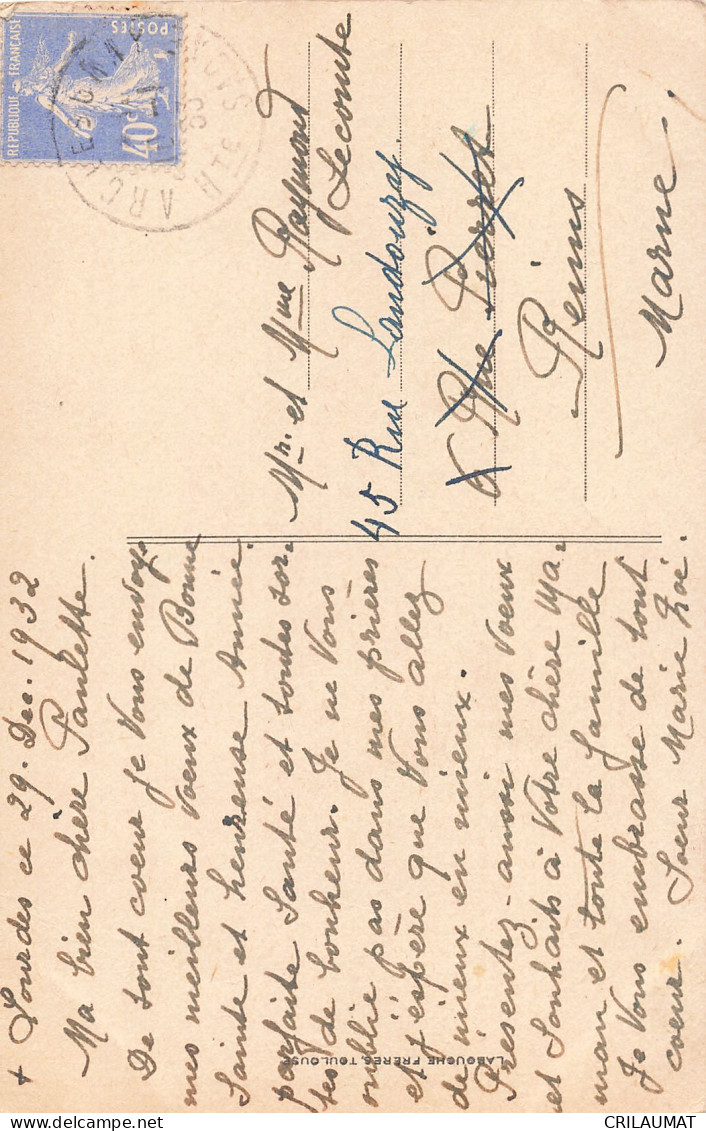 + Lourdes ce 29. Dec. 1932
Ma bien chère Paulette.
De tout coeur je Vous envoye
mes meilleurs voeux de Bonne
Sainte et heureuse Année.
parfaite Santé et toutes sor-
tes de bonheur. Je ne Vous
oublie pas dans mes prières
et j'éspère que Vous allez
de mieux en mieux.
Présentez-aussi mes voeux
et Souhaits à Votre chère Ma-
man et toute la famille
Je Vous embrasse de tout
coeur. Soeur Marie Zoé.
Mr. et Mme Raymond
Lecomte
45 Rue Landouzy
6 Rue Pierret
Reims
Marne
REPUBLIQUE FRANÇAISE
POSTES
40c
LABOUCHE FRÈRES, TOULOUSE
CRILAUMAT